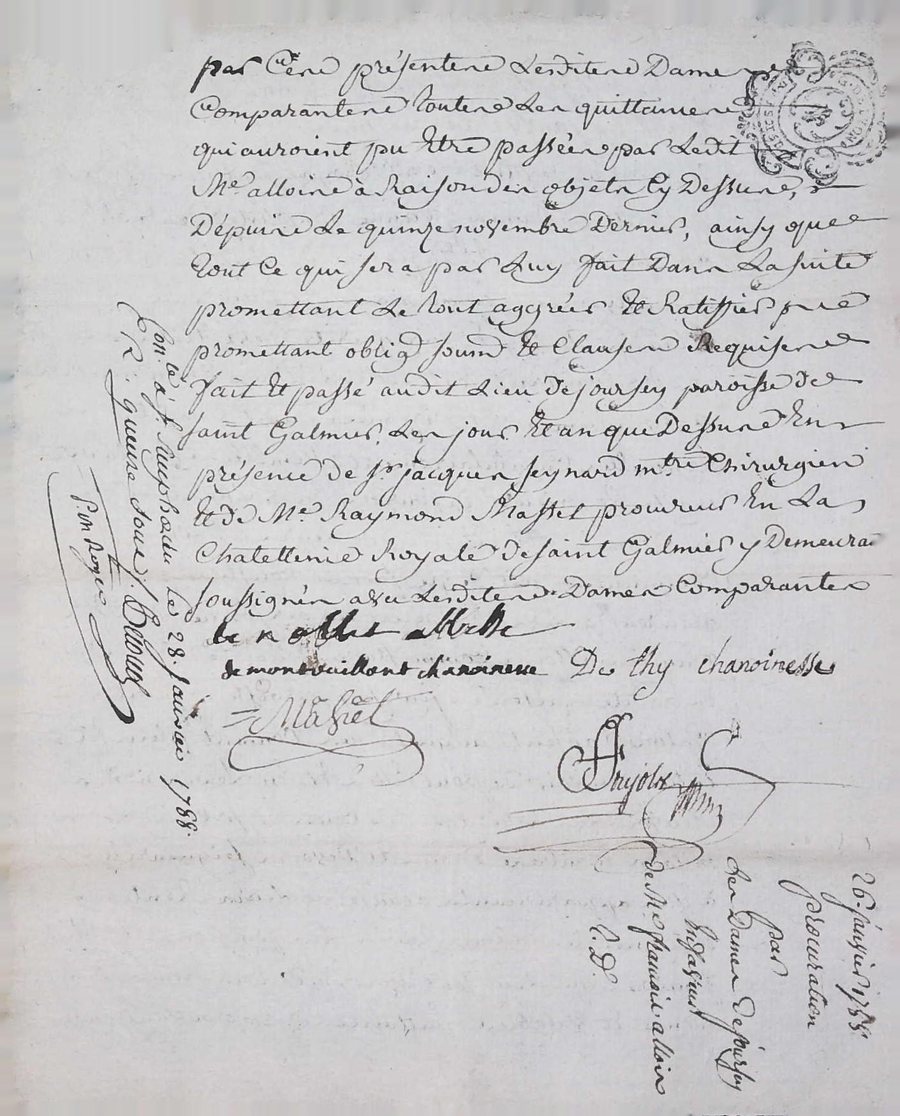 par Ces présentes Lesdites Dames
Comparantes toutes Les quittances
qui auroient pu Etre passées par Ledit
Me. alloin à Raison des objets Cy Dessus,
Dépuis Le quinze novembre Dernier, ainsy que
tout Ce qui sera par Luy fait Dans La suite
promettant Le tout aggréer Et Ratiffier
promettant obligt soumt Et Clauses Requises
fait Et passé audit Lieu de joursey paroisse de
saint Galmier, Les jour Et an que Dessus En
présence de Sr. jacques seynard mtre Chirurgien
Et de Me. Raymond Masset procureur En La
Chatellenie Royale de saint Galmier y Demeurant
soussignés avec Lesdites Dames Comparantes
de montrouillant chanoinesse De thy chanoinesse
Pujolx
26. janvier 1788.
procuration
par
Les Dames de joursey
En faveur
de Me. francois alloin
C. D.
Con.lé à St. Simphorien Le 28. Janvier 1788.
R. quinze sous